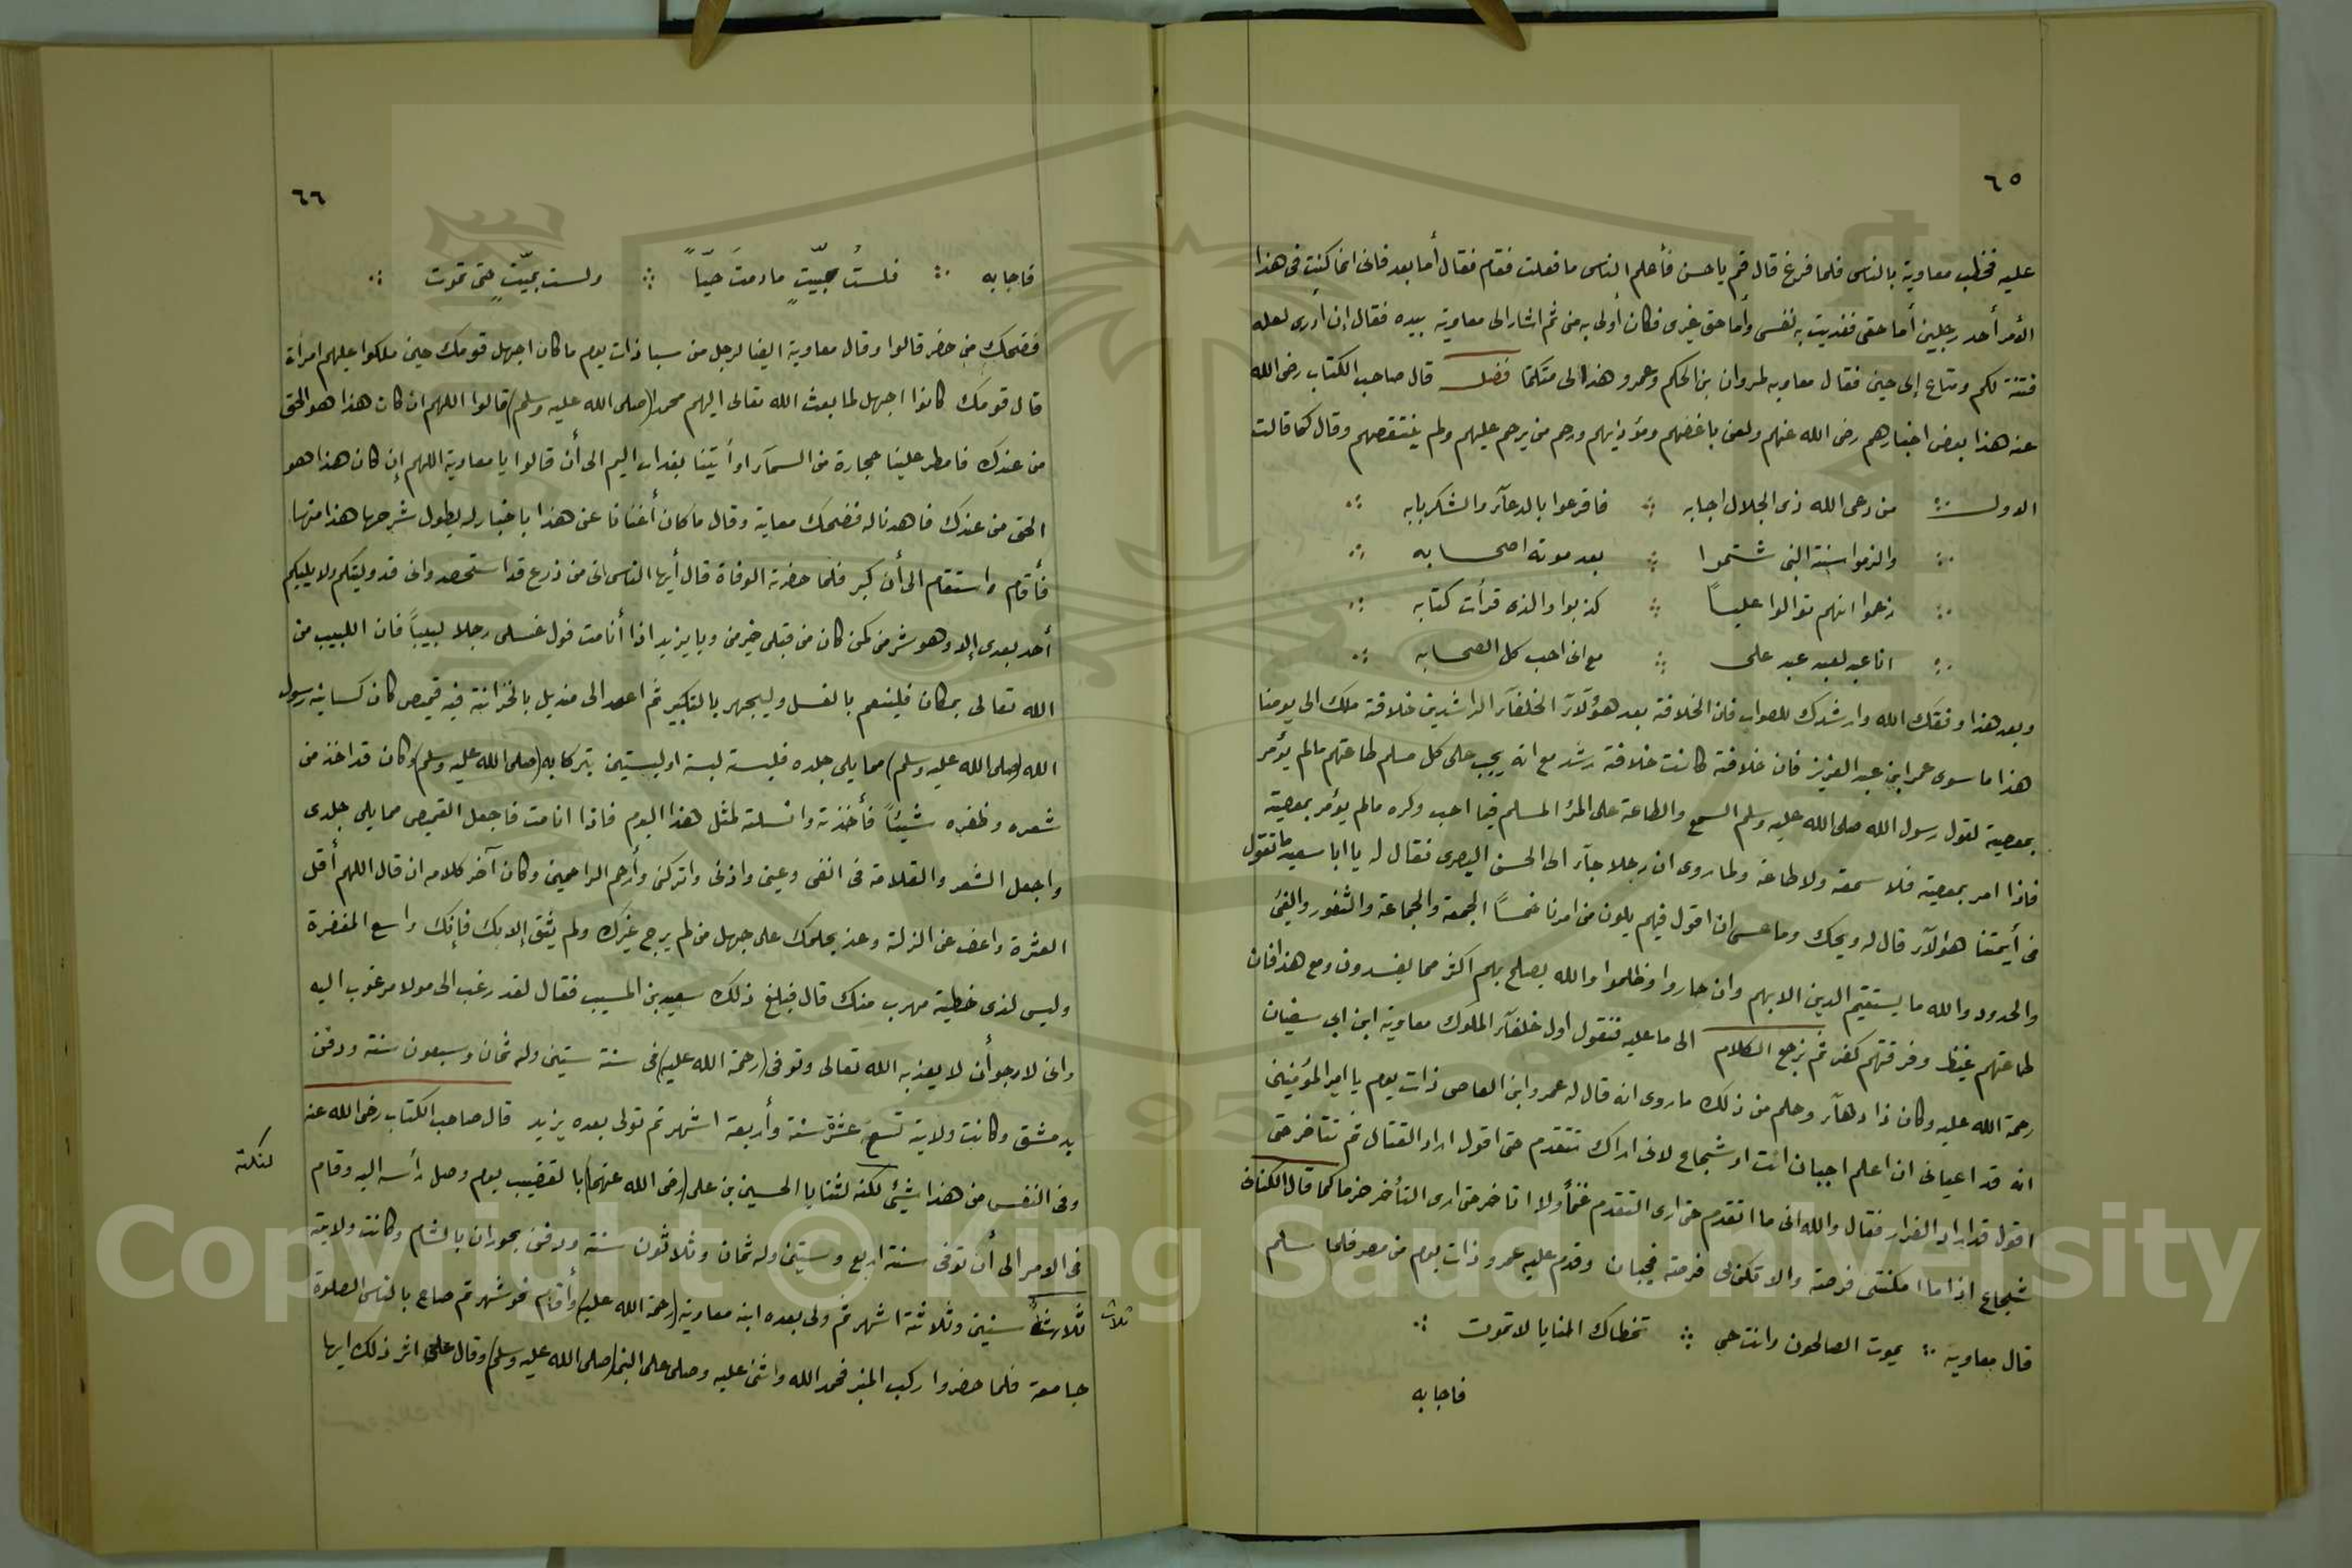 ٦٥
عليه فخطب معاوية بالناس فلما فرغ قال قم يا حسن فأعلم الناس ما فعلت فقام فقال أما بعد فانى انما كنت فى هذا
الأمر أحد رجلين أما حقى ففديت به نفسى وأما حق غيرى فكان أولى به منى ثم اشار الى معاوية بيده فقال إن أدرى لعله
فتنة لكم ومتاع إلى حين فقال معاويه لمروان بن الحكم وعمرو هذا لى متكلما فصل قال صاحب الكتاب رضى الله
عنه هذا بعض اخبارهم رضى الله عنهم ولعن باغضهم ومؤذيهم ورحم من يرحم عليهم ولم ينتقصهم وقال كما قالت
الاول من دعى الله ذى الجلال اجابه فاقرعوا بالدعآء والشكر بابه
والزموا سنة النبى شتموا بعد موته اصحابه
زعموا انهم توالوا علياً كذبوا والذى قرأت كتابه
انا عبد لعبد عبد على مع انى احب كل الصحابه
وبعد هذا وفقك الله وارشدك للصواب فان الخلافة بعد هؤلآء الخلفآء الراشدين خلافة ملك الى يومنا
هذا ما سوى عمر ابن عبد العزيز فان خلافته كانت خلافة رشد مع انه يجب على كل مسلم طاعتهم مالم يؤمر
بمعصية لقول رسول الله صلى الله عليه وسلم السمع والطاعة على المرء المسلم فيما احب وكره مالم يؤمر بمعصية
فاذا امر بمعصية فلا سمعه ولا طاعة ولما روى ان رجلا جآء الى الحسن البصرى فقال له يا ابا سعيد ما تقول
فى أيمتنا هؤلآء قال له ويحك وما عسى ان اقول فيهم يلون من امرنا خمساً الجمعة والجماعة والثغور والفئ
والحدود والله ما يستقيم الدين الا بهم وان جاروا وظلموا والله يصلح بهم اكثر مما يفسدون ومع هذا فان
طاعتهم غيظ وفرقتهم كفر ثم نرجع الكلام الى ما عليه فنقول اول خلفآء الملوك معاوية ابن ابى سفيان
رحمة الله عليه وكان ذا دهآء وحلم من ذلك ما روى انه قال له عمرو ابن العاصى ذات يوم يا امير المؤمنين
انه قد اعيانى ان اعلم اجبان انت او شجاع لانى اراك تتقدم حتى اقول اراد القتال ثم تتأخر حتى
اقول قد اراد الفرار فقال والله انى ما اتقدم حتى ارى التقدم غنماً ولا اتأخر حتى ارى التأخر حزما كما قال الكنانى
شجاع اذا ما امكنتنى فرصة والا تكن لى فرصة فجبان وقدم عليه عمرو ذات يوم من مصر فلما سلم
قال معاوية يموت الصالحون وانت حى تخطاك المنايا لا تموت
فاجابه
٦٦
فاجابه فلستُ بميّتٍ مادمتَ حيّاً ولست بميّتٍ حتى تموت
فضحك من حضر قالوا وقال معاوية ايضا لرجل من سبا ذات يوم ما كان اجهل قومك حين ملكوا عليهم امرأة
قال قومك كانوا اجهل لما بعث الله تعالى اليهم محمدا (صلى الله عليه وسلم) قالوا اللهم ان كان هذا هو الحق
من عندك فامطر علينا حجارة من السمآء او أيتنا بعذاب اليم الى أن قالوا يا معاوية اللهم إن كان هذا هو
الحق من عندك فاهدنا له فضحك معاية وقال ما كان أغنانا عن هذا باخبار له يطول شرحها هذا منها
فأقام واستقام الى أن كبر فلما حضرته الوفاة قال أيها الناس انى من زرع قد استحصد وانى قد وليتكم ولا يليكم
أحد بعدى إلا وهو شر منى كمن كان من قبلى خير منى ويا يزيد اذا أنا مت فول غسلى رجلا لبيباً فان اللبيب من
الله تعالى بمكان فلينعم بالغسل وليجهر بالتكبير ثم اعمد الى منديل بالخزانة فيه قميص كان كسانيه رسول
الله (صلى الله عليه وسلم) مما يلى جلده فلبسته لبسة او لبستين تبركا به (صلى الله عليه وسلم) وكان قد اخذ من
شعره وظفره شيئاً فأخذته وانسلته لمثل هذا اليوم فاذا انا مت فاجعل القميص مما يلى جلدى
واجعل الشعر والقلامة فى انفى وعينى واذنى واتركنى وأرحم الراحمين وكان آخر كلامه ان قال اللهم أقل
العثرة واعف عن الزلة وعد بحلمك على جهل من لم يرج غيرك ولم يثق إلا بك فإنك واسع المغفرة
وليس لذى خطية مهرب منك قال فبلغ ذلك سعيد بن المسيب فقال لقد رغب الى مولا مرغوب اليه
وانى لارجو أن لا يعذبه الله تعالى وتوفى (رحمة الله عليه) فى سنة ستين وله ثمان وسبعون سنة ودفن
بدمشق وكانت ولايته تسع عشرة سنة وأربعة اشهر ثم تولى بعده يزيد قال صاحب الكتاب رضى الله عنه
وفى النفس من هذا شيئ لكنه لثنايا الحسين بن على (رضى الله عنهما) بالقضيب يوم وصل رأسه اليه وقام
لنكته
فى الامر الى أن توفى سنة اربع وستين وله ثمان وثلاثون سنة ودفن بحوران بالشام وكانت ولايته
ثلاثة سنين وثلاثة اشهر ثم ولى بعده ابنه معاوية (رحمة الله عليه) وأقام نحو شهر ثم صاح بالناس الصلوة
ثلاث
جامعة فلما حضروا ركب المنبر فحمد الله واثنى عليه وصلى على النبى (صلى الله عليه وسلم) وقال على اثر ذلك ايها
Copyright © King Saud University